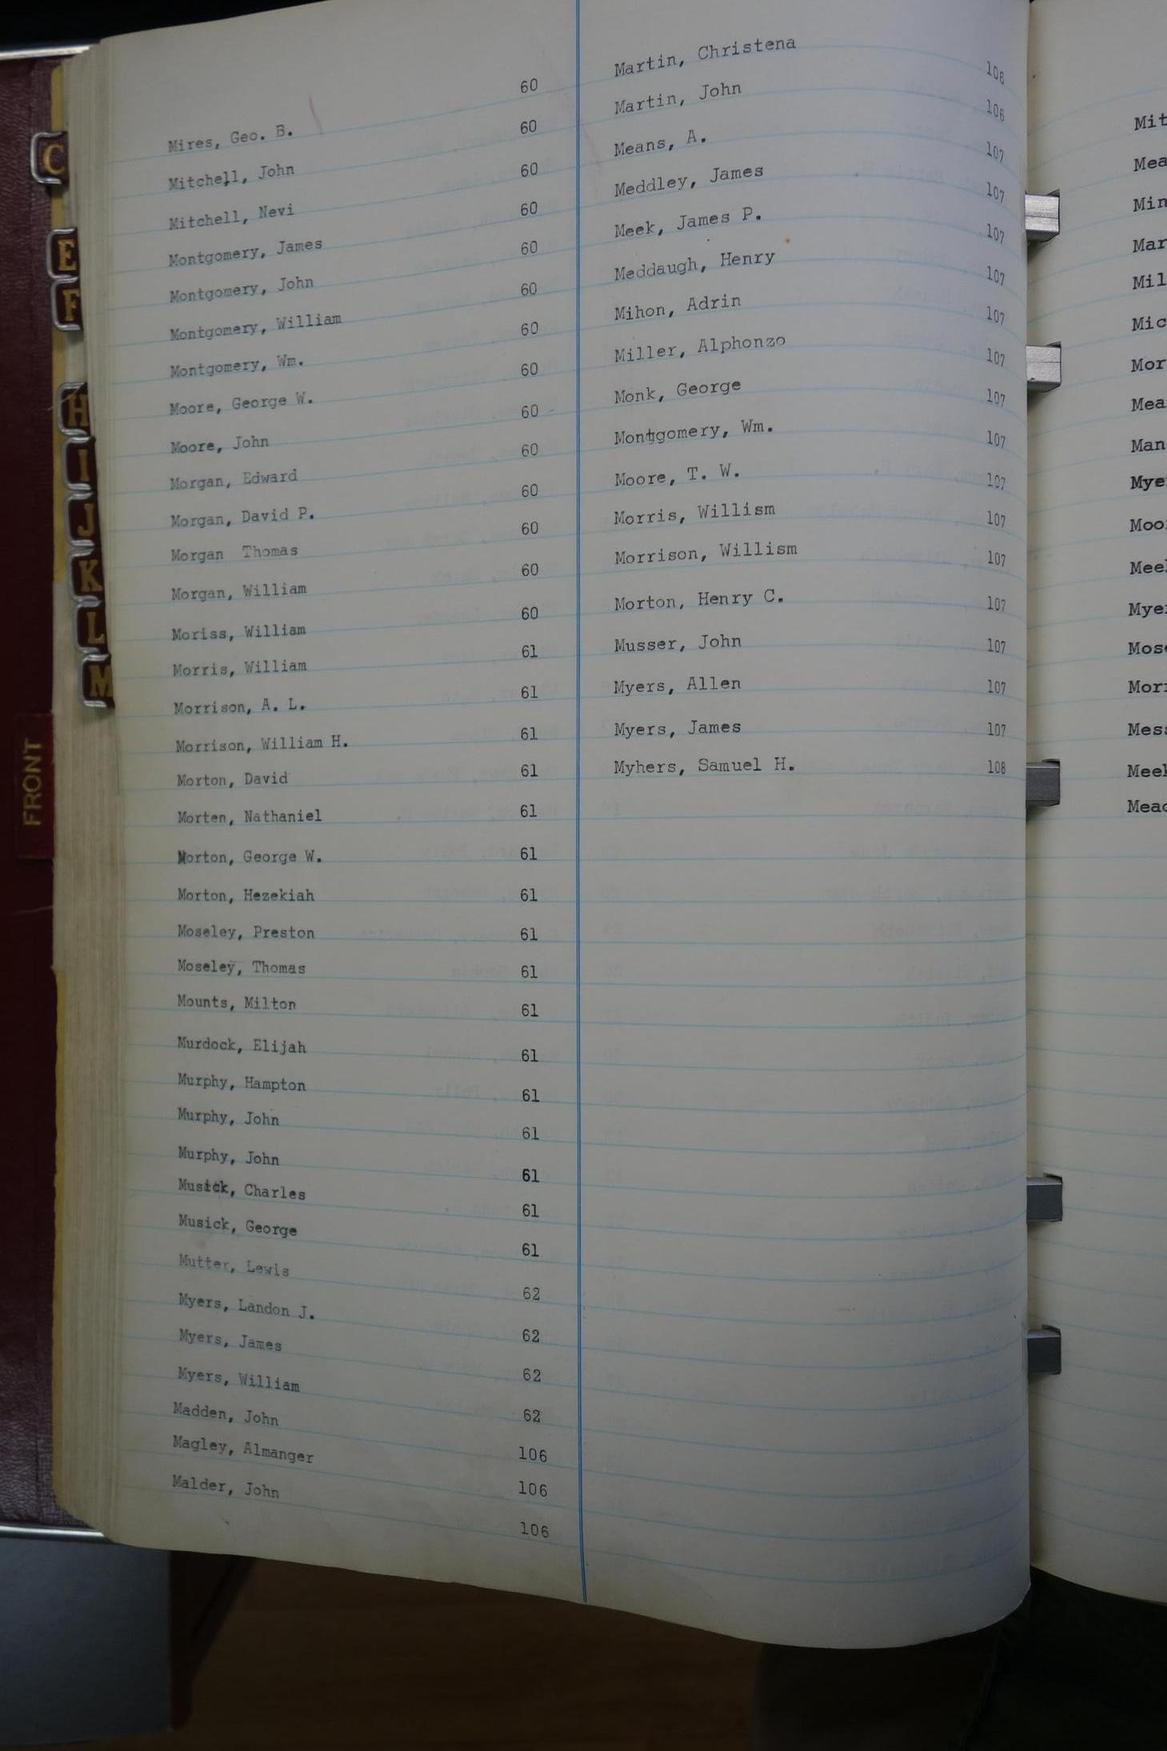 C
E
F
H
I
J
K
L
M
FRONT
Mires, Geo. B. 60
Mitchell, John 60
Mitchell, Nevi 60
Montgomery, James 60
Montgomery, John 60
Montgomery, William 60
Montgomery, Wm. 60
Moore, George W. 60
Moore, John 60
Morgan, Edward 60
Morgan, David P. 60
Morgan Thomas 60
Morgan, William 60
Moriss, William 60
Morris, William 61
Morrison, A. L. 61
Morrison, William H. 61
Morton, David 61
Morten, Nathaniel 61
Morton, George W. 61
Morton, Hezekiah 61
Moseley, Preston 61
Moseley, Thomas 61
Mounts, Milton 61
Murdock, Elijah 61
Murphy, Hampton 61
Murphy, John 61
Murphy, John 61
Musick, Charles 61
Musick, George 61
Mutter, Lewis 62
Myers, Landon J. 62
Myers, James 62
Myers, William 62
Madden, John 106
Magley, Almanger 106
Malder, John 106
Martin, Christena 106
Martin, John 106
Means, A. 107
Meddley, James 107
Meek, James P. 107
Meddaugh, Henry 107
Mihon, Adrin 107
Miller, Alphonzo 107
Monk, George 107
Montgomery, Wm. 107
Moore, T. W. 107
Morris, Willism 107
Morrison, Willism 107
Morton, Henry C. 107
Musser, John 107
Myers, Allen 107
Myers, James 107
Myhers, Samuel H. 108